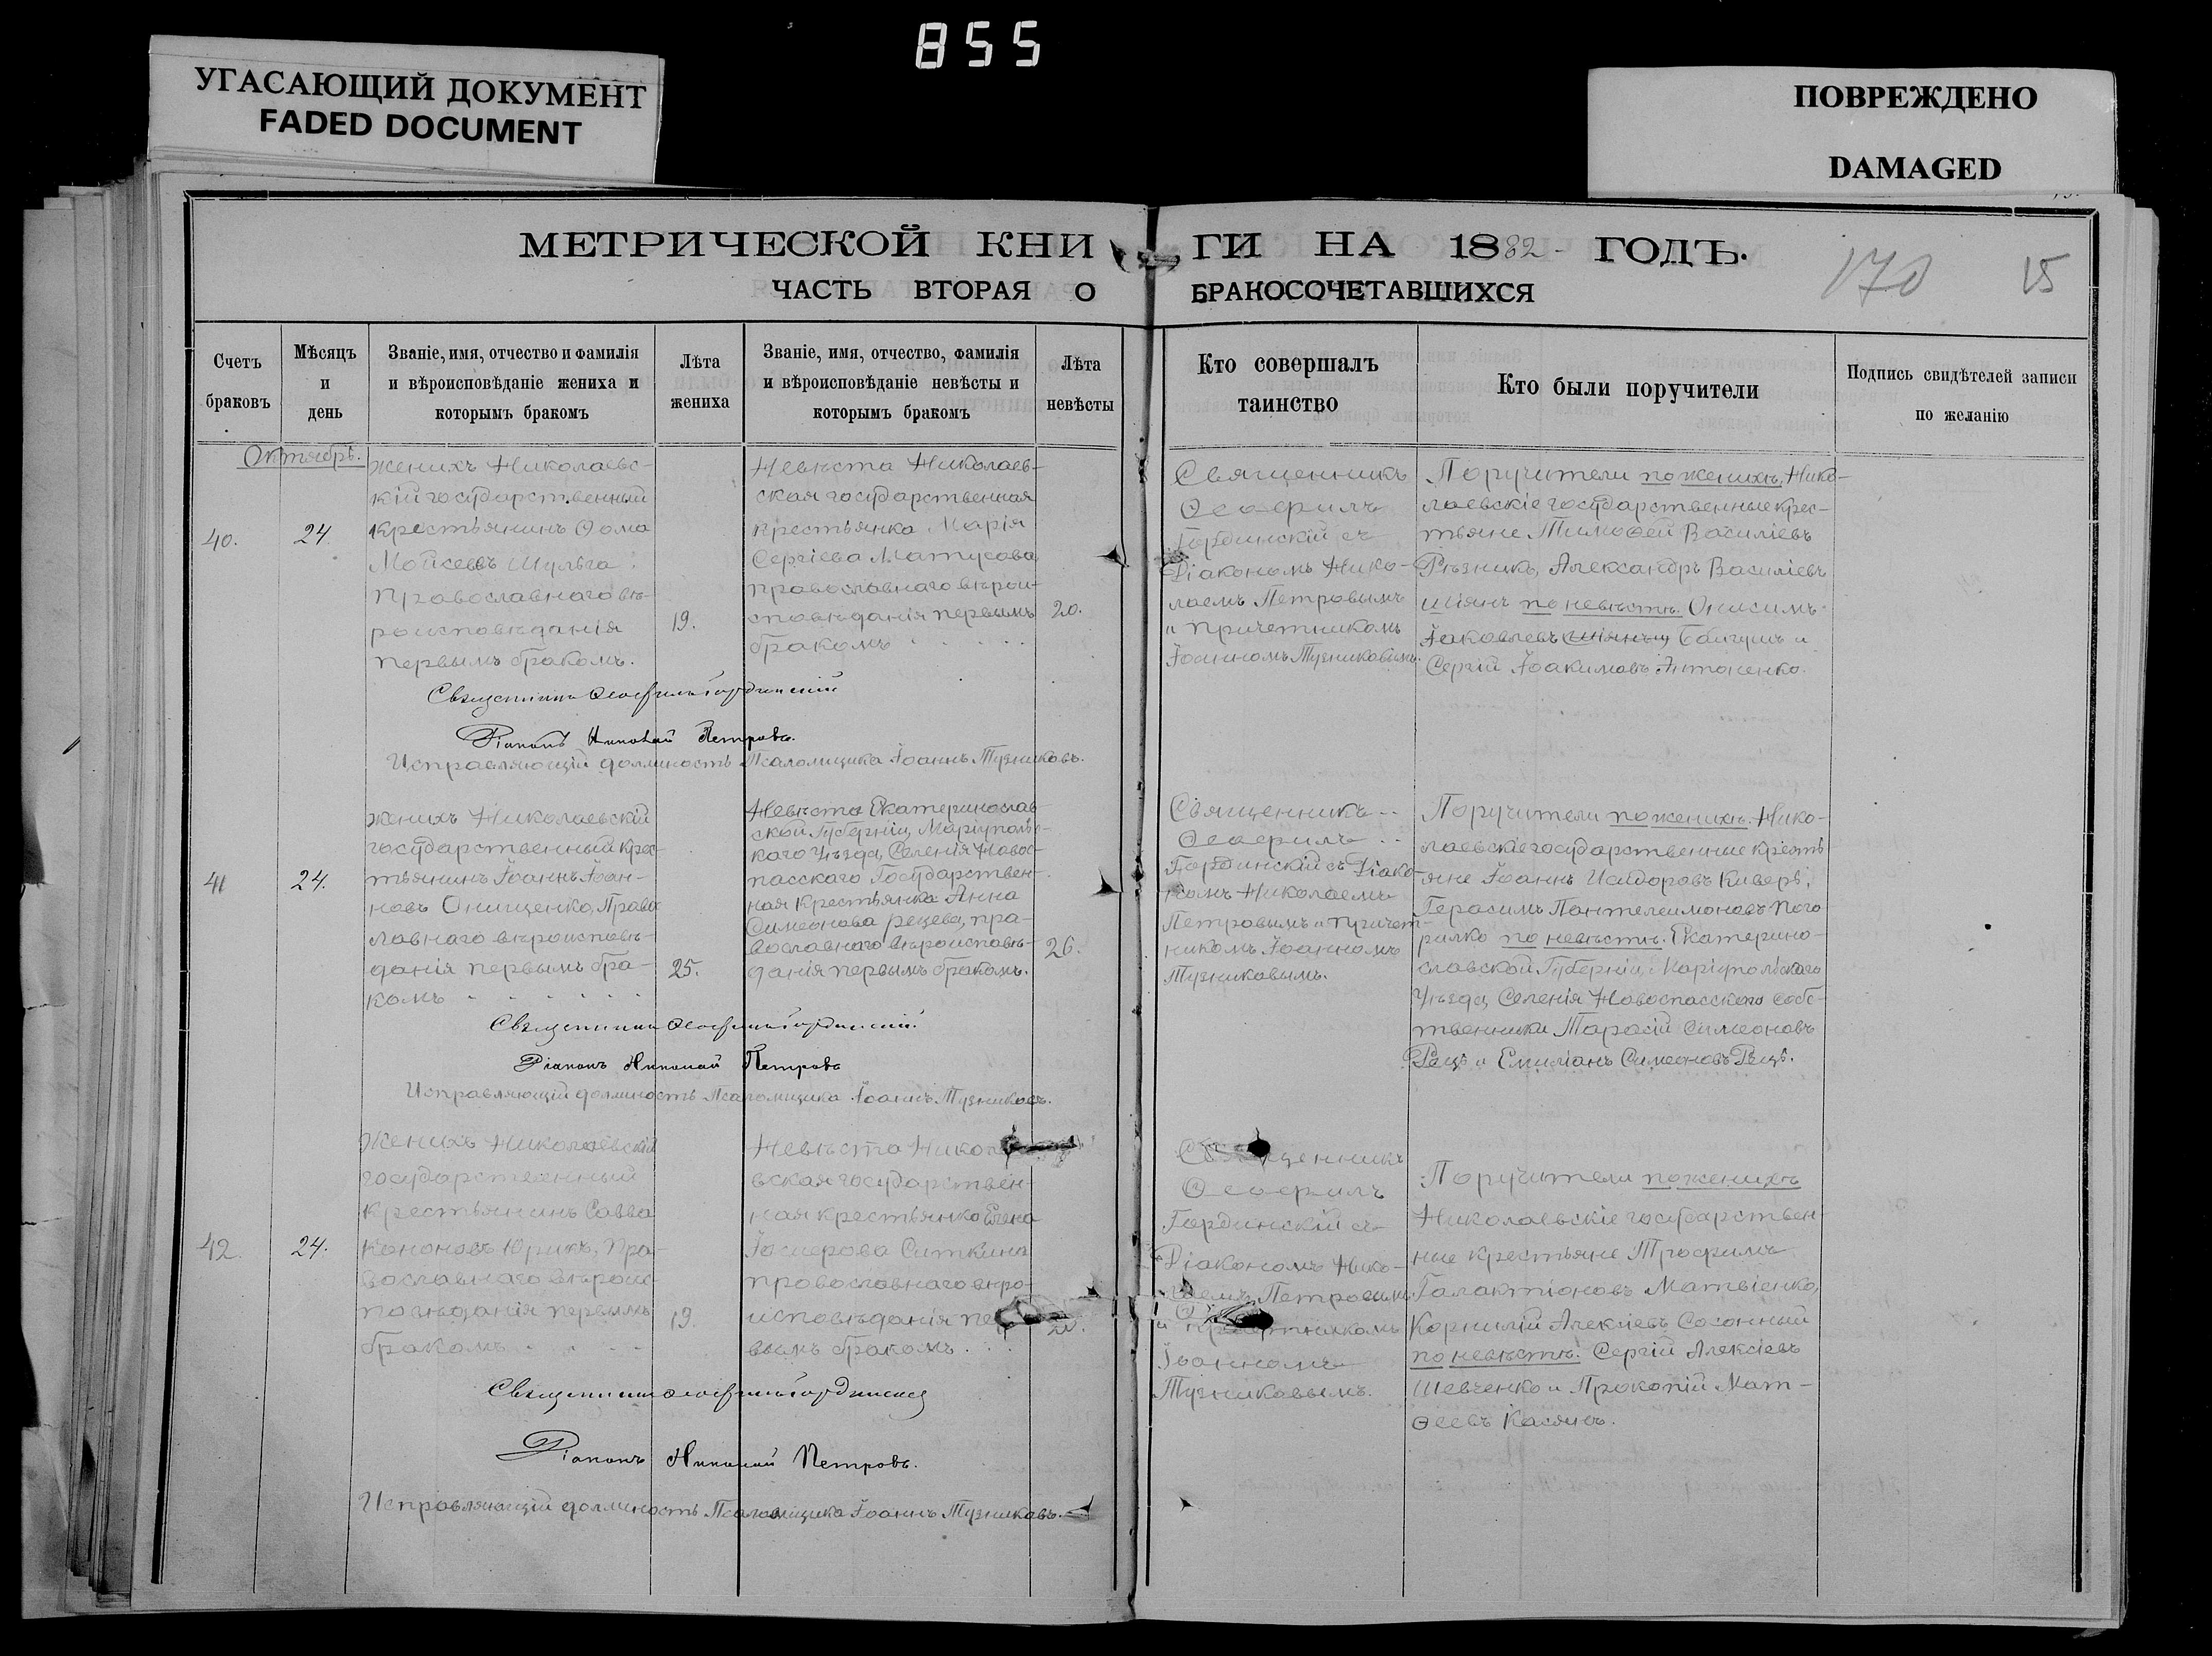 855
УГАСАЮЩИЙ ДОКУМЕНТ
FADED DOCUMENT
ПОВРЕЖДЕНО
DAMAGED
МЕТРИЧЕСКОЙ КНИ
ГИ НА 1882 ГОДЪ.
170
15
ЧАСТЬ ВТОРАЯ О
БРАКОСОЧЕТАВШИХСЯ
Счетъ
браковъ
Мѣсяцъ
и
день
Званіе, имя, отчество и фамилія
и вѣроисповѣданіе жениха и
которымъ бракомъ
Лѣта
жениха
Званіе, имя, отчество, фамилія
и вѣроисповѣданіе невѣсты и
которымъ бракомъ
Лѣта
невѣсты
Кто совершалъ
таинство
Кто были поручители
Подпись свидѣтелей записи
по желанію
Октябрь.
40.
24.
Женихъ Николаевс-
кій государственный
крестьянинъ Ѳома
Моисеевъ Шульга
Православнаго вѣ-
роисповѣданія
первымъ бракомъ.
19.
Невѣста Николаев-
ская государственная
крестьянка Марія
Сергіева Матусова
православнаго вѣрои-
сповѣданія первымъ
бракомъ
20.
Священникъ
Ѳеофилъ
Гординскій съ
Діакономъ Нико-
лаемъ Петровымъ
и Причетникомъ
Іоанномъ Тузниковымъ.
Поручители по женихѣ, Нико-
лаевскіе государственные крес-
тьяне Тимоѳей Василіевъ
Рѣзникъ, Александръ Василіевъ
Шіянъ по невѣстѣ. Онисимъ
Іаковлевъ и
Сергій Іоакимовъ Антоненко.
Священникъ Ѳеофилъ Гординскій
Діаконъ Николай Петровъ.
Исправляющій должность Псаломщика Іоаннъ Тузниковъ.
41
24.
Женихъ Николаевскій
государственный крес-
тьянинъ Іоаннъ Іоан-
новъ Онищенко, Правос
лавнаго вѣроисповѣ-
данія первымъ бра-
комъ
25.
Невѣста Екатеринослав-
ской Губерніи, Маріупольс-
каго Уѣзда, Селенія Новос-
пасскаго Государствен-
ная крестьянка Анна
Симеонова Рецева, пра-
вославнаго вѣроисповѣ-
данія первымъ бракомъ.
26.
Священникъ
Ѳеофилъ
Гординскій съ Діако-
номъ Николаемъ
Петровымъ и Причет-
никомъ Іоанномъ
Тузниковымъ.
Поручители по женихѣ. Нико-
лаевскіе государственные кресть
яне Іоаннъ Исидоровъ Киверь,
Герасимъ Пантелеимоновъ Пого-
рилко по невѣстѣ. Екатерино-
славской Губерніи, Маріупольскаго
Уѣзда, Селенія Новоспасскаго собс-
твенники Тарасій Симеоновъ
Рець и Емиліанъ Симеоновъ Рець.
Священникъ Ѳеофилъ Гординскій.
Діаконъ Николай Петровъ
Исправляющій должность Псаломщика Іоаннъ Тузниковъ.
42.
24.
Женихъ Николаевскій
государственный
крестьянинъ Савва
Кононовъ Юрикъ, Пра-
вославнаго вѣроис-
повѣданія первымъ
бракомъ
19.
Невѣста Никол
вская государствен-
ная крестьянка Елена
Іосифова Ситкина
православнаго вѣро-
исповѣданія пе
вымъ бракомъ.
Священникъ
Ѳеофилъ
Гординскій съ
Діакономъ Нико-
лаемъ Петровымъ
и Причетникомъ
Іоанномъ
Тузниковымъ.
Поручители по женихѣ
Николаевскіе государствен-
ные крестьяне Трофимъ
Галактіоновъ Матвіенко,
Корнилій Алексіевъ Сосонный
по невѣстѣ. Сергій Алексіевъ
Шевченко и Прокопій Мат-
ѳеевъ Касянъ.
Священникъ Ѳеофилъ Гординскій
Діаконъ Николай Петровъ.
Исправляющій должность Псаломщика Іоаннъ Тузниковъ.